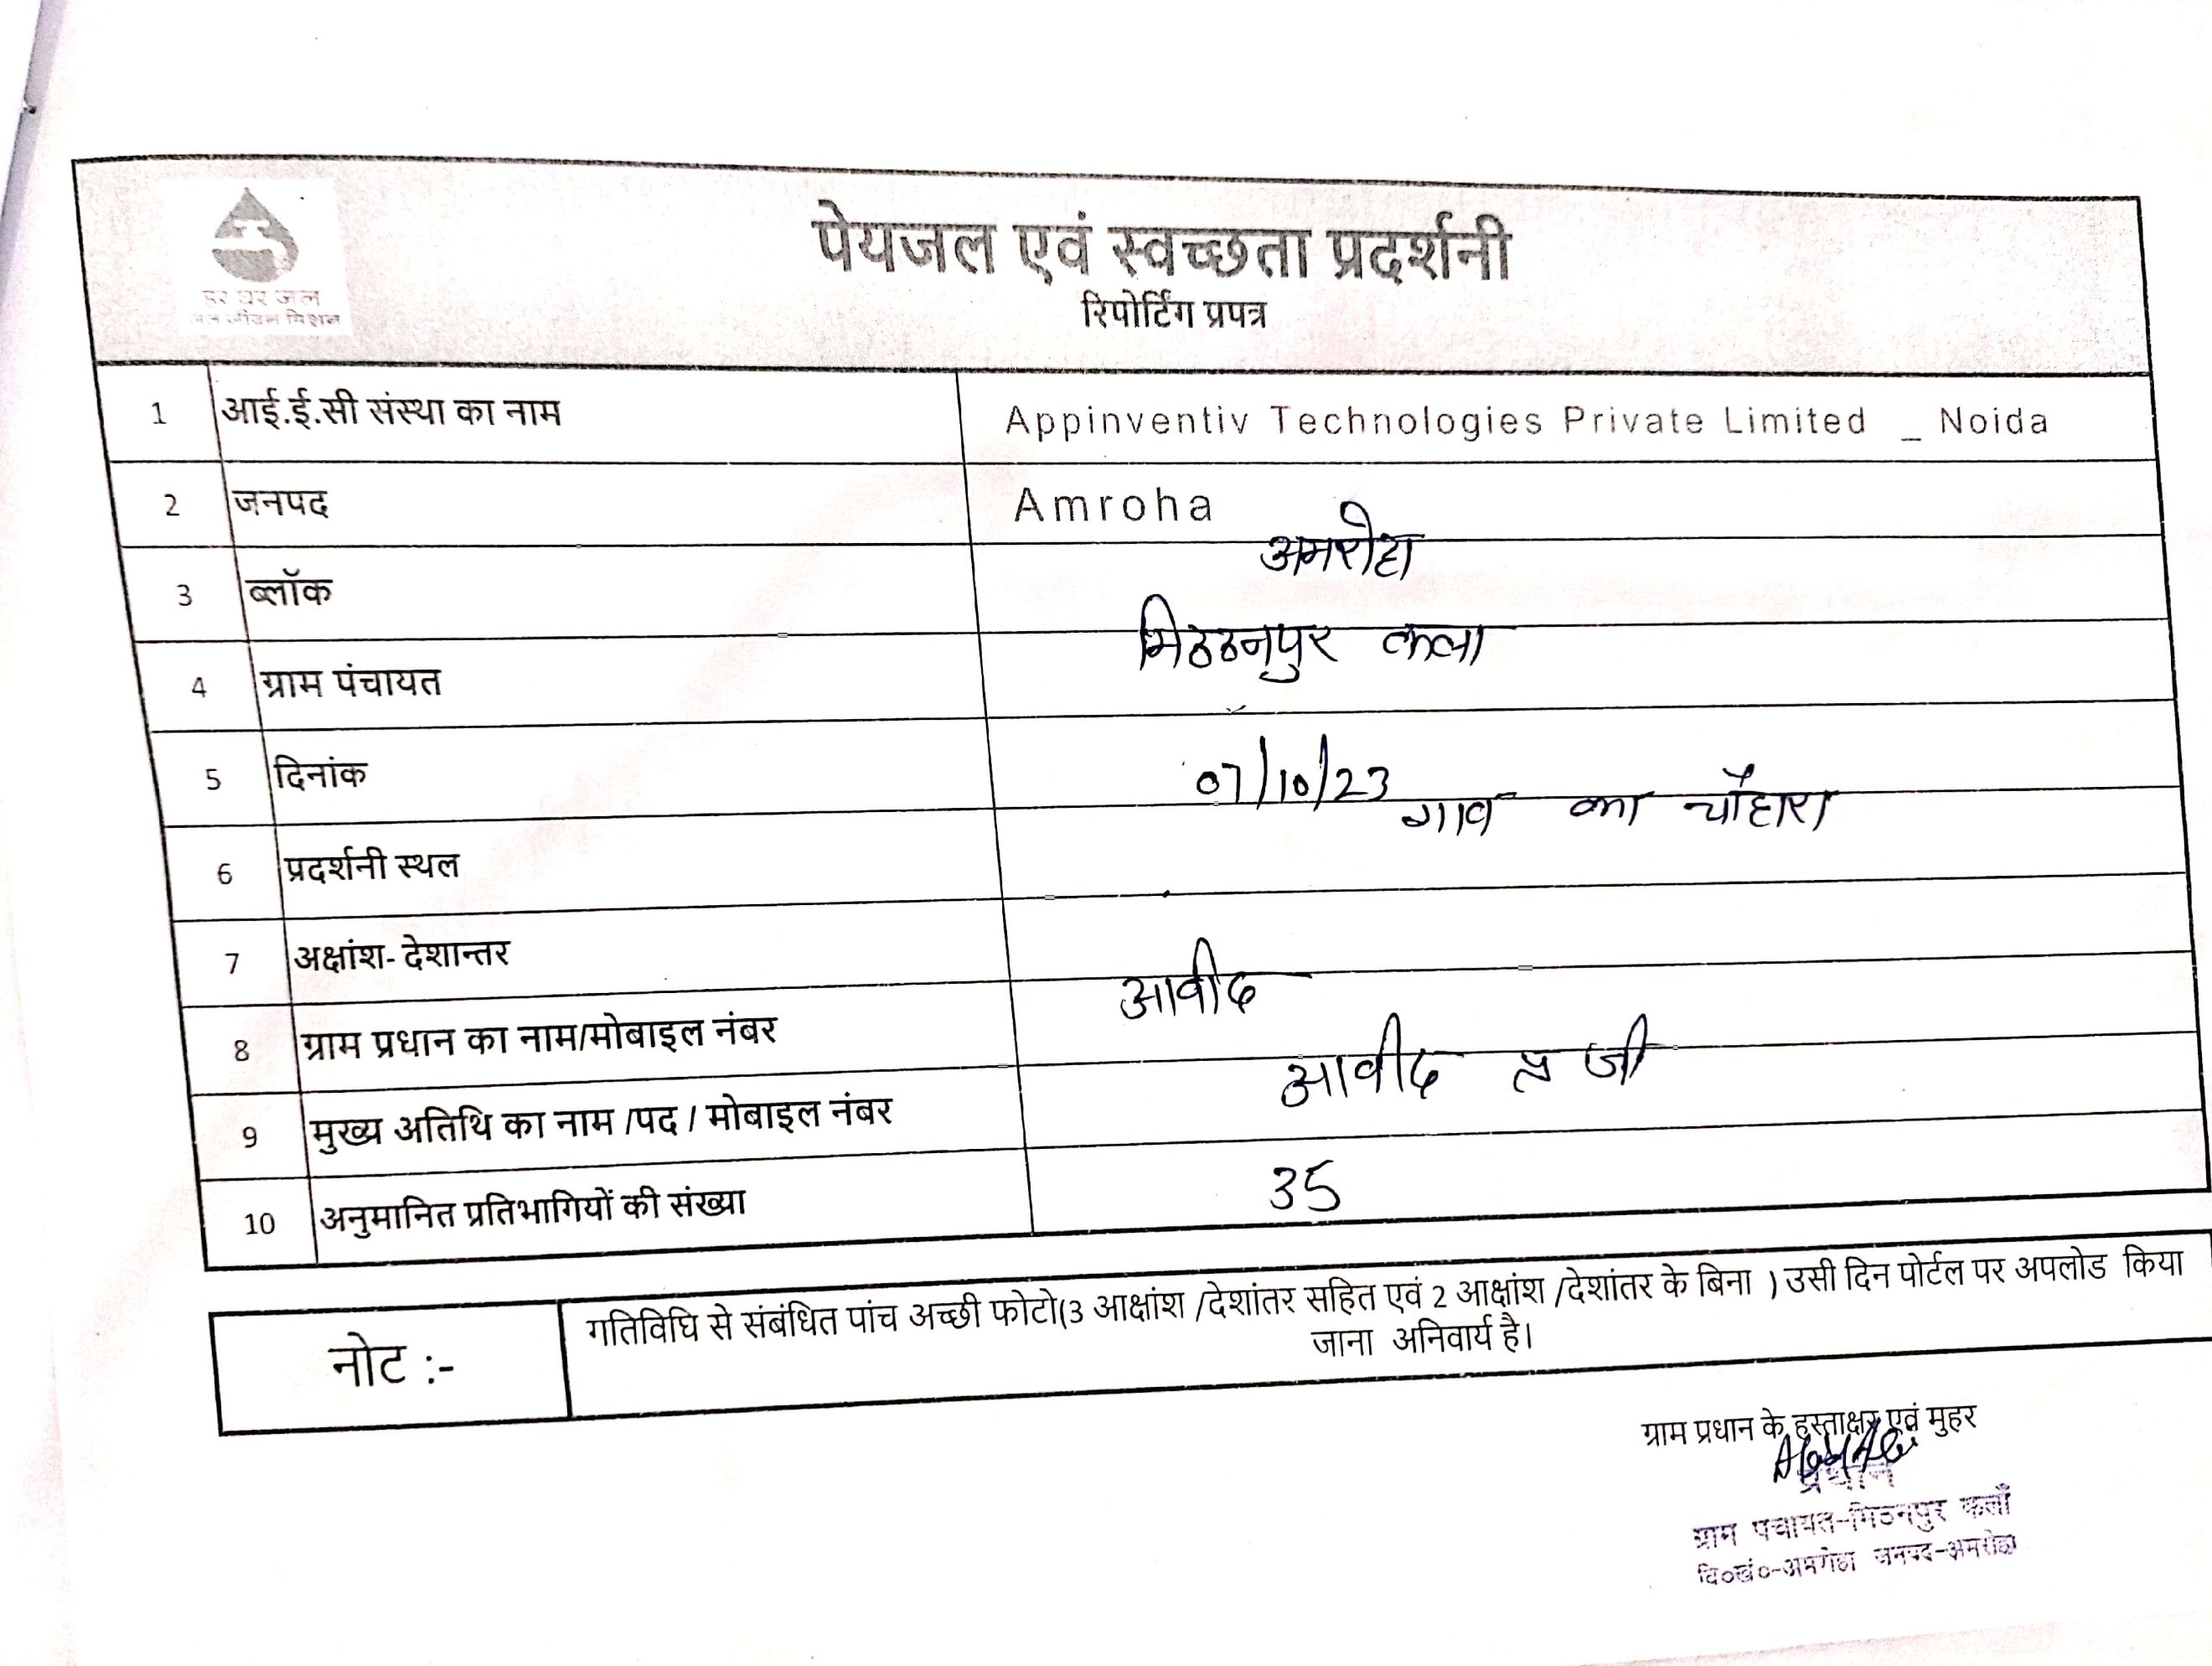 हर घर जल
जल जीवन मिशन
पेयजल एवं स्वच्छता प्रदर्शनी
रिपोर्टिंग प्रपत्र
1 आई.ई.सी संस्था का नाम Appinventiv Technologies Private Limited _ Noida
2 जनपद Amroha
3 ब्लॉक अमरोहा
4 ग्राम पंचायत मिठठनपुर कला
5 दिनांक 07/10/23
6 प्रदर्शनी स्थल गाव का चौहारा
7 अक्षांश- देशान्तर
8 ग्राम प्रधान का नाम/मोबाइल नंबर आवीद
9 मुख्य अतिथि का नाम /पद / मोबाइल नंबर आवीद प्र जी
10 अनुमानित प्रतिभागियों की संख्या 35
नोट :- गतिविधि से संबंधित पांच अच्छी फोटो(3 आक्षांश /देशांतर सहित एवं 2 आक्षांश /देशांतर के बिना ) उसी दिन पोर्टल पर अपलोड किया
जाना अनिवार्य है।
ग्राम प्रधान के हस्ताक्षर एवं मुहर
प्रधान
ग्राम पंचायत-मिठनपुर कलाँ
वि०खं०-अमरोहा जनपद-अमरोहा